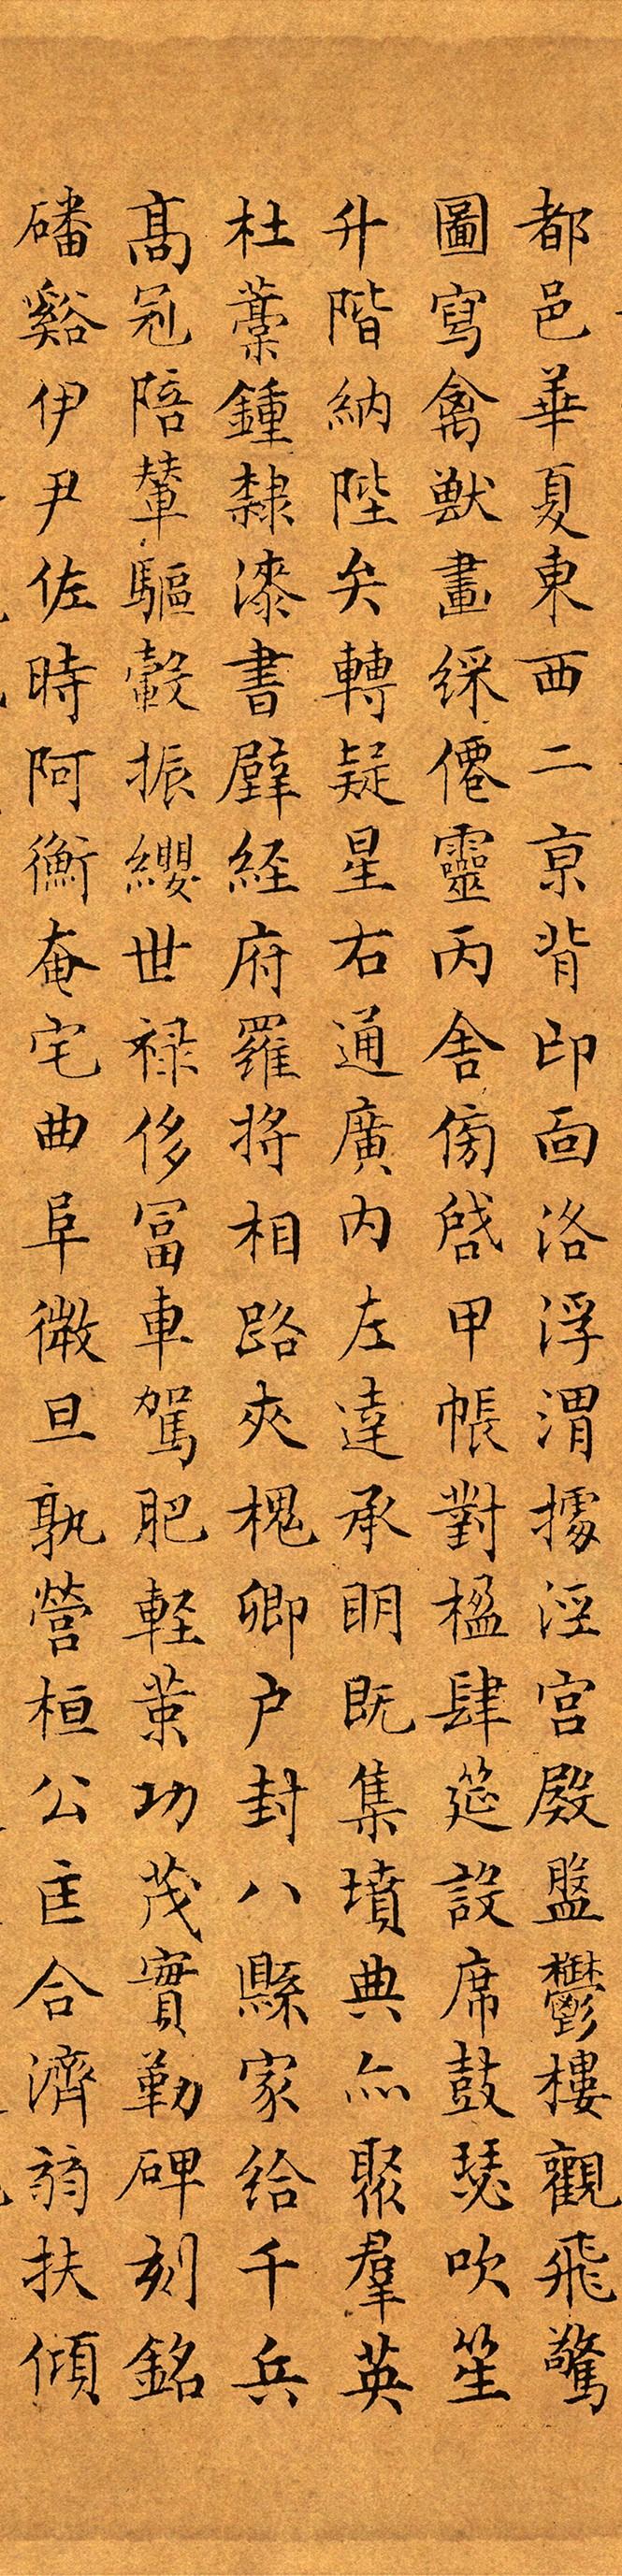 都邑華夏東西二京背邙面洛浮渭據涇宮殿盤鬱樓觀飛驚
圖寫禽獸畫綵僊靈丙舍傍啟甲帳對楹肆筵設席鼓瑟吹笙
升階納陛弁轉疑星右通廣內左達承明既集墳典亦聚羣英
杜藁鍾隸漆書壁経府羅將相路夾槐卿戶封八縣家給千兵
高冠陪輦驅轂振纓世祿侈冨車駕肥軽策功茂實勒碑刻銘
磻谿伊尹佐時阿衡奄宅曲阜微旦孰營桓公匡合濟弱扶傾